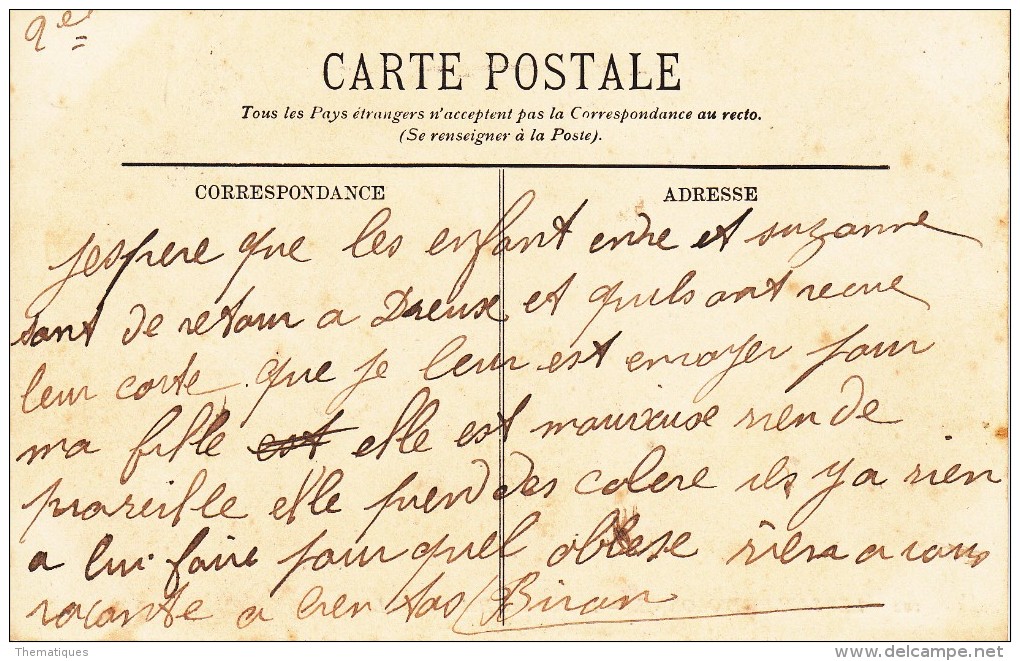 2e
CARTE POSTALE
Tous les Pays étrangers n'acceptent pas la Correspondance au recto.
(Se renseigner à la Poste).
CORRESPONDANCE
ADRESSE
jespere que les enfant et suzanne
sont de retour a Dreux et quils ont recue
leur carte que je leur est envoyer pour
ma fille est elle est mauvaise rien de
pareille elle prend des colere ils ya rien
a lui faire pour quel obeise rien a vous
raconte a bien tos Biron
Thematiques
delcampe.net